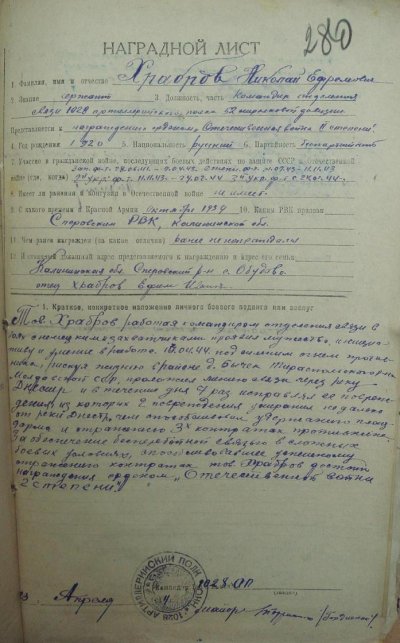 280
НАГРАДНОЙ ЛИСТ
1. Фамилия, имя и отчество Храбров Николай Ефремович
2. Звание сержант 3. Должность, часть Командир отделения
связи 1028 артиллерийского полка 52 стрелковой дивизии
Представляется к награждению орденом „Отечественная война II степени“
4. Год рождения 1920 5. Национальность русский 6. Партийность беспартийный
7. Участие в гражданской войне, последующих боевых действиях по защите СССР и отечественной
войне (где, когда)
8. Имеет ли ранения и контузии в Отечественной войне не имеет
9. С какого времени в Красной Армии октябрь 1939 10. Каким РВК призван
Спировским РВК, Калининской обл.
11. Чем ранее награжден (за какие отличия) ранее не награждался
12. Постоянный домашний адрес представляемого к награждению и адрес его семьи
Калининская обл. Спировский р-н с.
отец Храбров Ефим
1. Краткое, конкретное изложение личного боевого подвига или заслуг
Тов. Храбров работая командиром отделения связи в
боях с немецкими захватчиками проявил мужество, инициа
тиву и умение в работе. 16.04.44 под сильным огнем против
ника, рискуя жизнью в районе д. Бычек Тираспольского р-на
Молдавской ССР, проложил линию связи через реку
Днестр и в течение дня 7 раз исправлял ее повреж
дения, из которых 2 повреждения устранил недалеко
от реки Днестр, чем способствовал удержанию плац
дарма и отражению 3х контратак противника.
За обеспечение бесперебойной связью в сложных
боевых условиях, способствовавшее успешному
отражению контратак тов. Храбров достоин
награждения орденом „Отечественной войны
2 степени“
1028 АП
Командир
майор
Апрель
1028 АРТИЛЛЕРИЙСКИЙ ПОЛК